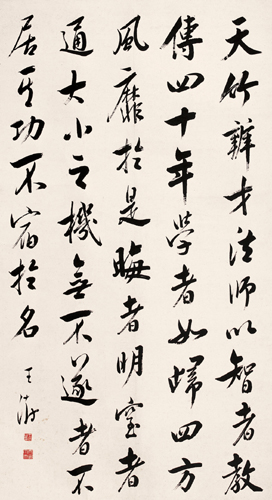 天竹辯才法師以智者教
傳四十年學者如歸四方
風靡於是晦者明窒者
通大小之機無不遂者不
居其功不宿於名
王澍